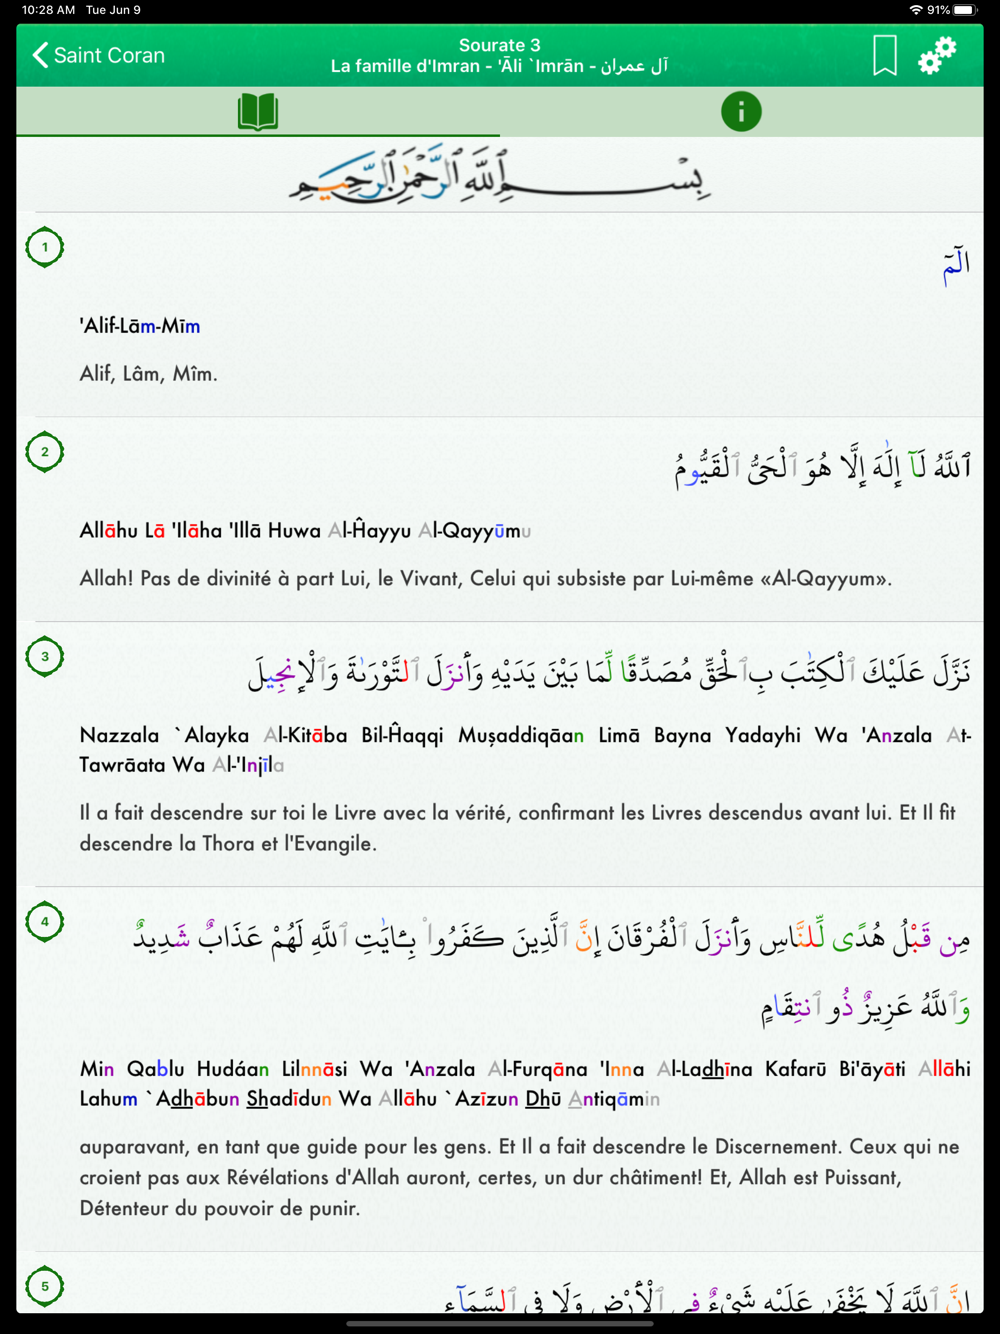 10:28 AM Tue Jun 9 91%
Saint Coran
Sourate 3
La famille d'Imran - 'Āli `Imrān - آل عمران
بِسْمِ ٱللَّهِ ٱلرَّحْمَٰنِ ٱلرَّحِيمِ
1
الٓمٓ
'Alif-Lām-Mīm
Alif, Lâm, Mîm.
2
ٱللَّهُ لَآ إِلَٰهَ إِلَّا هُوَ ٱلْحَىُّ ٱلْقَيُّومُ
Allāhu Lā 'Ilāha 'Illā Huwa Al-Ĥayyu Al-Qayyūmu
Allah! Pas de divinité à part Lui, le Vivant, Celui qui subsiste par Lui-même «Al-Qayyum».
3
نَزَّلَ عَلَيْكَ ٱلْكِتَٰبَ بِٱلْحَقِّ مُصَدِّقًا لِّمَا بَيْنَ يَدَيْهِ وَأَنزَلَ ٱلتَّوْرَىٰةَ وَٱلْإِنجِيلَ
Nazzala `Alayka Al-Kitāba Bil-Ĥaqqi Muşaddiqāan Limā Bayna Yadayhi Wa 'Anzala At-
Tawrāata Wa Al-'Injīla
Il a fait descendre sur toi le Livre avec la vérité, confirmant les Livres descendus avant lui. Et Il fit
descendre la Thora et l'Evangile.
4
مِن قَبْلُ هُدًى لِّلنَّاسِ وَأَنزَلَ ٱلْفُرْقَانَ إِنَّ ٱلَّذِينَ كَفَرُوا۟ بِـَٔايَٰتِ ٱللَّهِ لَهُمْ عَذَابٌ شَدِيدٌ
وَٱللَّهُ عَزِيزٌ ذُو ٱنتِقَامٍ
Min Qablu Hudáan Lilnnāsi Wa 'Anzala Al-Furqāna 'Inna Al-Ladhīna Kafarū Bi'āyāti Allāhi
Lahum `Adhābun Shadīdun Wa Allāhu `Azīzun Dhū Antiqāmin
auparavant, en tant que guide pour les gens. Et Il a fait descendre le Discernement. Ceux qui ne
croient pas aux Révélations d'Allah auront, certes, un dur châtiment! Et, Allah est Puissant,
Détenteur du pouvoir de punir.
5
إِنَّ ٱللَّهَ لَا يَخْفَىٰ عَلَيْهِ شَىْءٌ فِى ٱلْأَرْضِ وَلَا فِى ٱلسَّمَآءِ